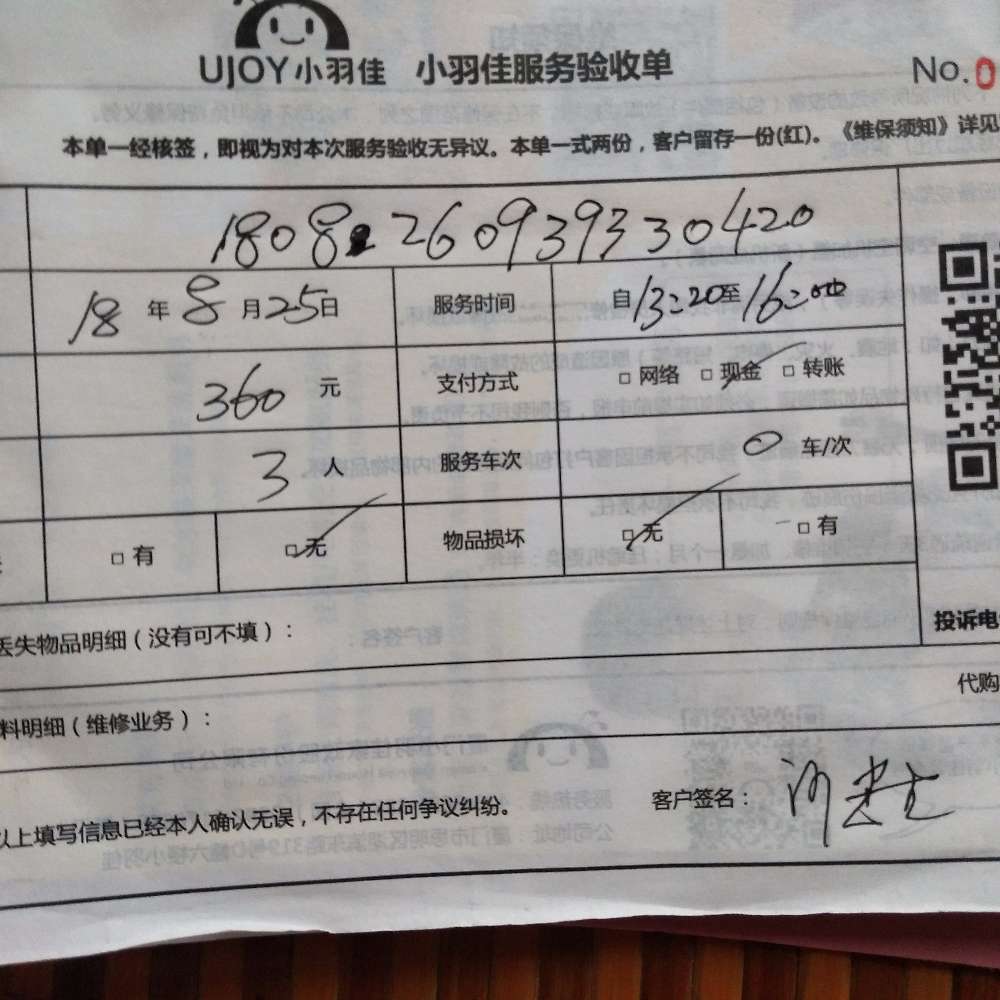 UJOY小羽佳 小羽佳服务验收单 No.0
本单一经核签，即视为对本次服务验收无异议。本单一式两份，客户留存一份(红)。《维保须知》详见
1808 26093933 0420
18 年 8 月 25 日 服务时间 自 13:20 至 16:00
360 元 支付方式 □ 网络 □ 现金 □ 转账
3 人 服务车次 0 车/次
□ 有 □ 无 物品损坏 □ 无 □ 有
丢失物品明细（没有可不填）：
投诉电
代购
料明细（维修业务）：
以上填写信息已经本人确认无误，不存在任何争议纠纷。 客户签名：